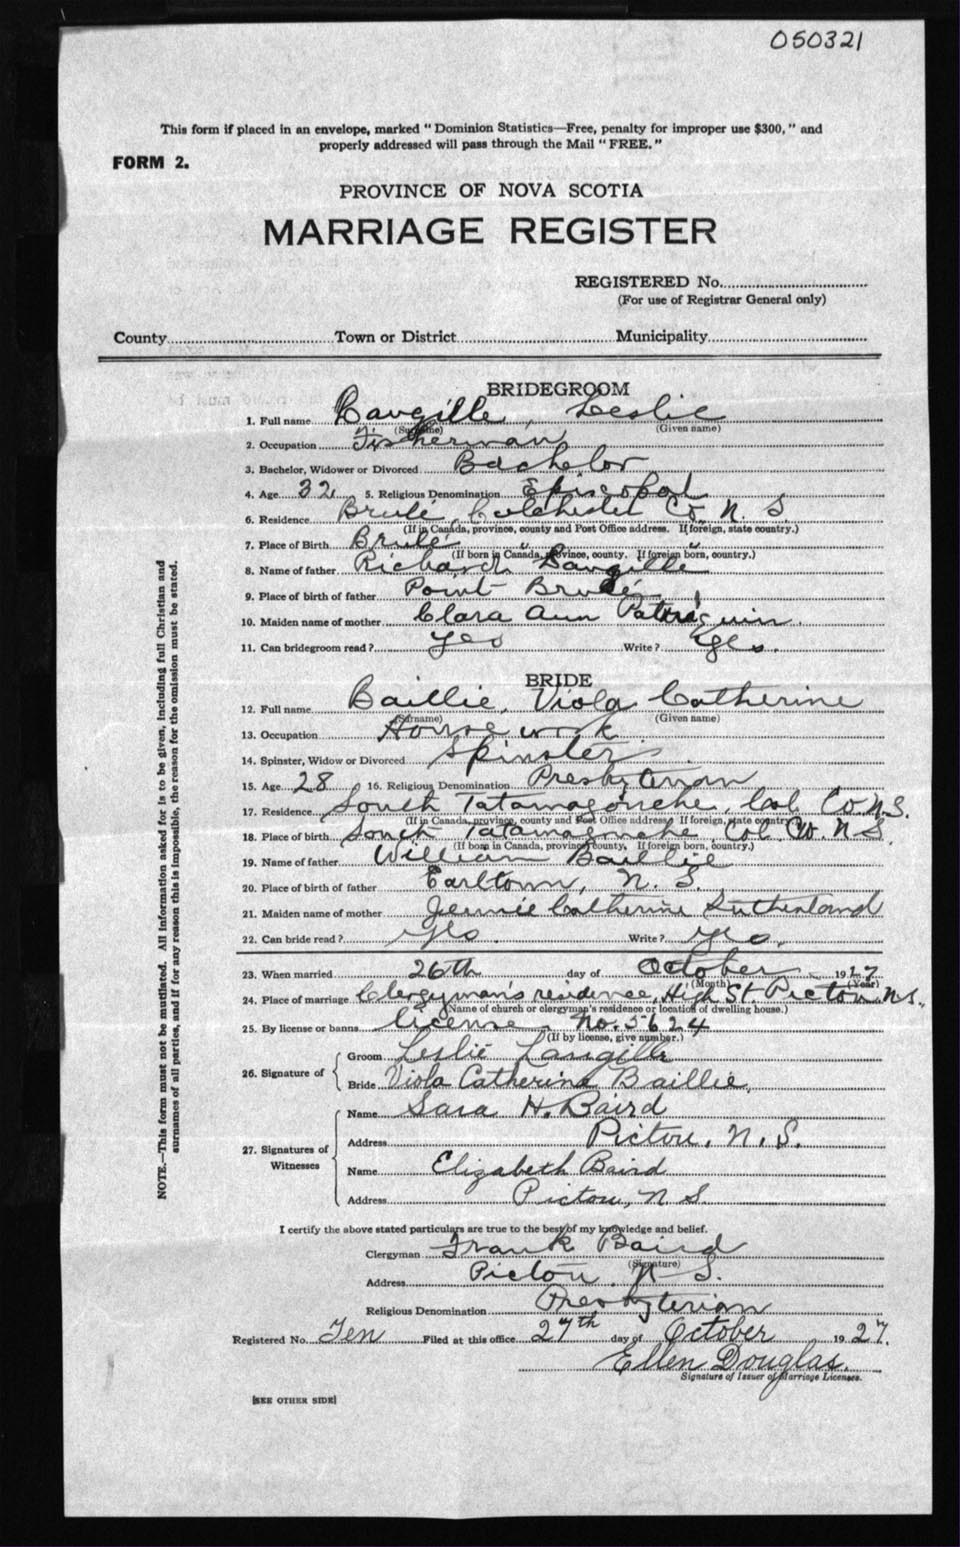 050321
This form if placed in an envelope, marked "Dominion Statistics—Free, penalty for improper use $300," and
properly addressed will pass through the Mail "FREE."
FORM 2.
PROVINCE OF NOVA SCOTIA
MARRIAGE REGISTER
REGISTERED No.
(For use of Registrar General only)
County Town or District Municipality
BRIDEGROOM
1. Full name Langille, Leslie
(Surname) (Given name)
2. Occupation Fisherman
3. Bachelor, Widower or Divorced Bachelor
4. Age 32 5. Religious Denomination Episcopal
6. Residence Brulé, Colchester Co. N. S.
(If in Canada, province, county and Post Office address. If foreign, state country.)
7. Place of Birth Brulé " "
(If born in Canada, province, county. If foreign born, country.)
8. Name of father Richard Langille
9. Place of birth of father Point Brulé
10. Maiden name of mother Clara Ann Patriquin
11. Can bridegroom read? yes Write? yes.
BRIDE
12. Full name Baillie, Viola Catherine
(Surname) (Given name)
13. Occupation House work
14. Spinster, Widow or Divorced Spinster
15. Age 28 16. Religious Denomination Presbyterian
17. Residence South Tatamagouche, Col. Co. N.S.
(If in Canada, province, county and Post Office address. If foreign, state country.)
18. Place of birth South Tatamagouche Col. Co. N.S.
(If born in Canada, province, county, If foreign born, country.)
19. Name of father William Baillie
20. Place of birth of father Earltown, N. S.
21. Maiden name of mother Jennie Catherine Sutherland
22. Can bride read? yes. Write? yes.
23. When married 26th day of October 1927
(Month) (Year)
24. Place of marriage Clergyman's residence, High St. Pictou N.S.
(Name of church or clergyman's residence or location of dwelling house.)
25. By license or banns license No. 5624
(If by license, give number.)
26. Signature of Groom Leslie Langille
Bride Viola Catherine Baillie,
27. Signatures of Witnesses Name Sara H. Baird
Address Pictou, N.S.
Name Elizabeth Baird
Address Pictou, N S
I certify the above stated particulars are true to the best of my knowledge and belief.
Clergyman Frank Baird
(Signature)
Address Pictou. N S.
Religious Denomination Presbyterian
Registered No. Ten Filed at this office 27th day of October 1927.
Ellen Douglas.
Signature of Issuer of Marriage Licenses.
[SEE OTHER SIDE]
NOTE.—This form must not be mutilated. All information asked for is to be given, including full Christian and
surnames of all parties, and if for any reason this is impossible, the reason for the omission must be stated.